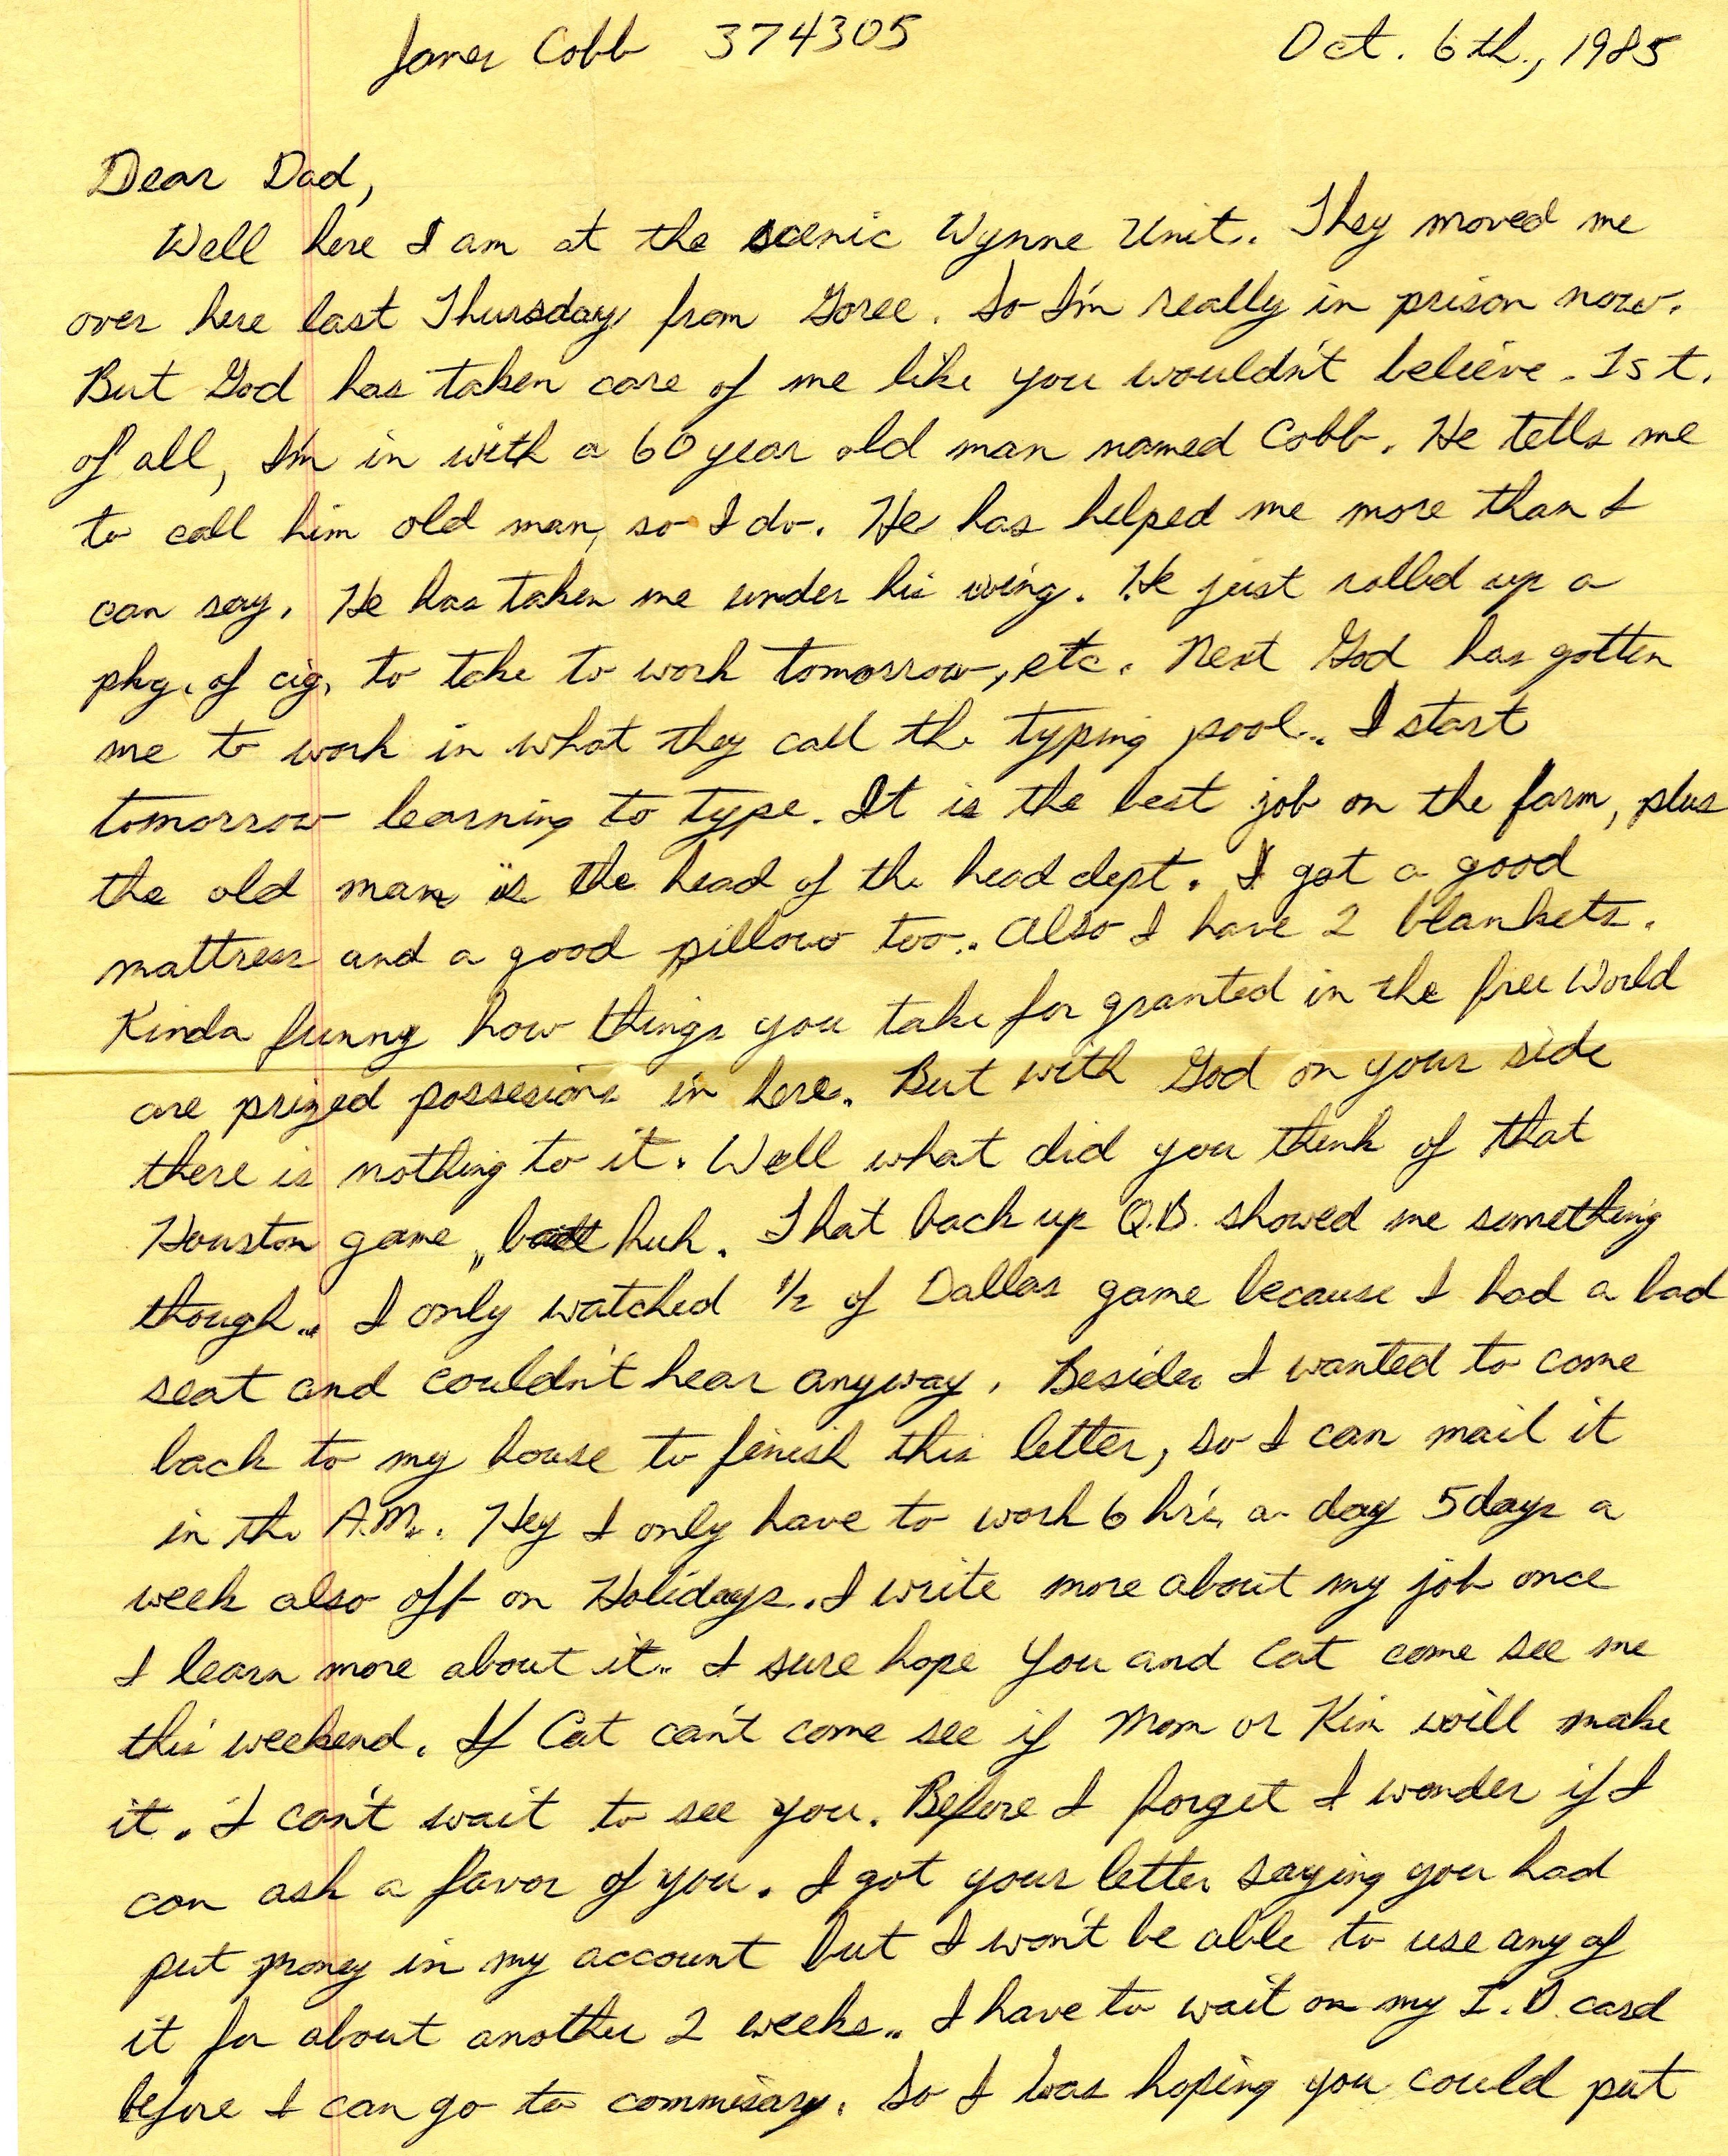 James Cobb 374305 Oct. 6th., 1985
Dear Dad,
Well here I am at the scenic Wynne Unit. They moved me
over here last Thursday from Goree. So I'm really in prison now.
But God has taken care of me like you wouldn't believe. 1st.
of all, I'm in with a 60 year old man named Cobb. He tells me
to call him old man, so I do. He has helped me more than I
can say. He has taken me under his wing. He just rolled up a
pkg. of cig. to take to work tomorrow, etc. Next God has gotten
me to work in what they call the typing pool. I start
tomorrow learning to type. It is the best job on the farm, plus
the old man is the head of the head dept. I got a good
mattress and a good pillow too. Also I have 2 blankets.
Kinda funny how things you take for granted in the free World
are prized possesions in here. But with God on your side
there is nothing to it. Well what did you think of that
Houston game, huh. That back up Q.B. showed me something
though. I only watched 1/2 of Dallas game because I had a bad
seat and couldn't hear anyway. Besides I wanted to come
back to my house to finish this letter, so I can mail it
in the A.M. Hey I only have to work 6 hr's a day 5 days a
week also off on Holidays. I write more about my job once
I learn more about it. I sure hope you and Cat come see me
this weekend. If Cat can't come see if Mom or Kin will make
it. I can't wait to see you. Before I forget I wonder if I
can ask a favor of you. I got your letter saying you had
put money in my account but I won't be able to use any of
it for about another 2 weeks. I have to wait on my I.D. card
before I can go to commisary. So I was hoping you could put